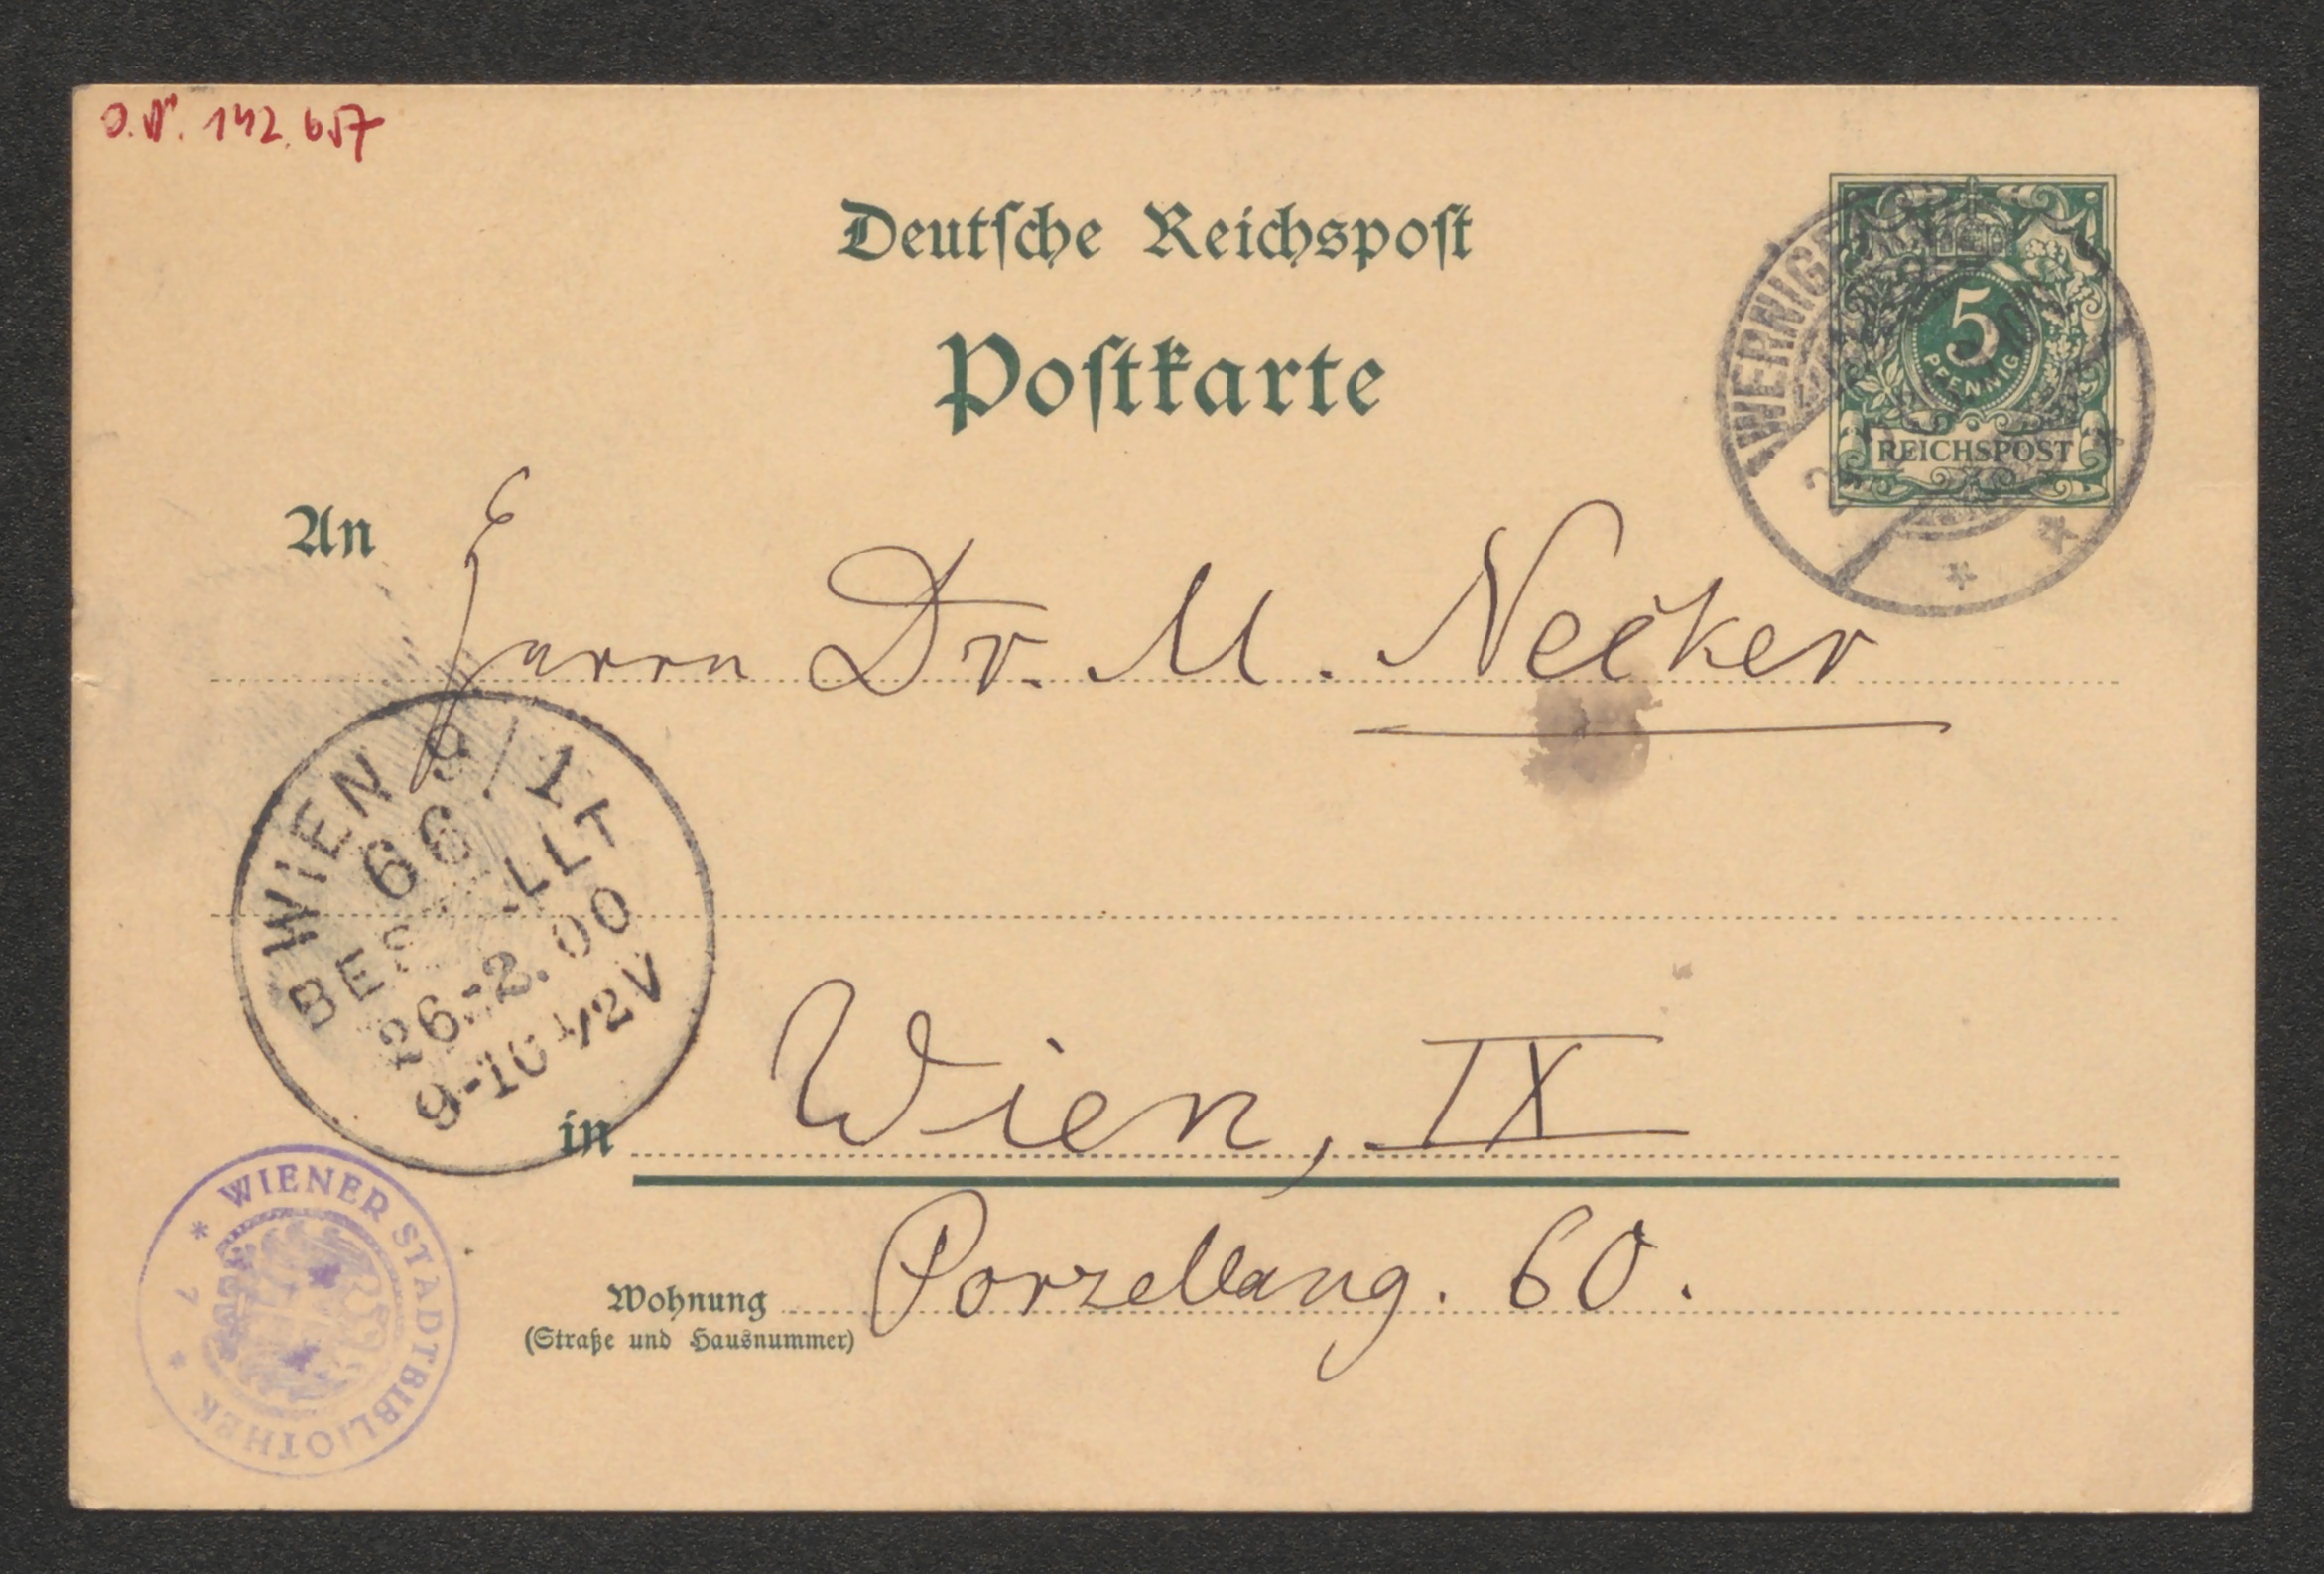 J.N. 142.657
Deutsche Reichspost
Postkarte
5
PFENNIG
REICHSPOST
An
Herrn Dr. M. Necker
WIEN 9/1
66
BESTELLT
26.-2.00
9-10 1/2 V
in Wien, IX
Wohnung Porzellang. 60.
(Straße und Hausnummer)
* WIENER STADTBIBLIOTHEK *
7